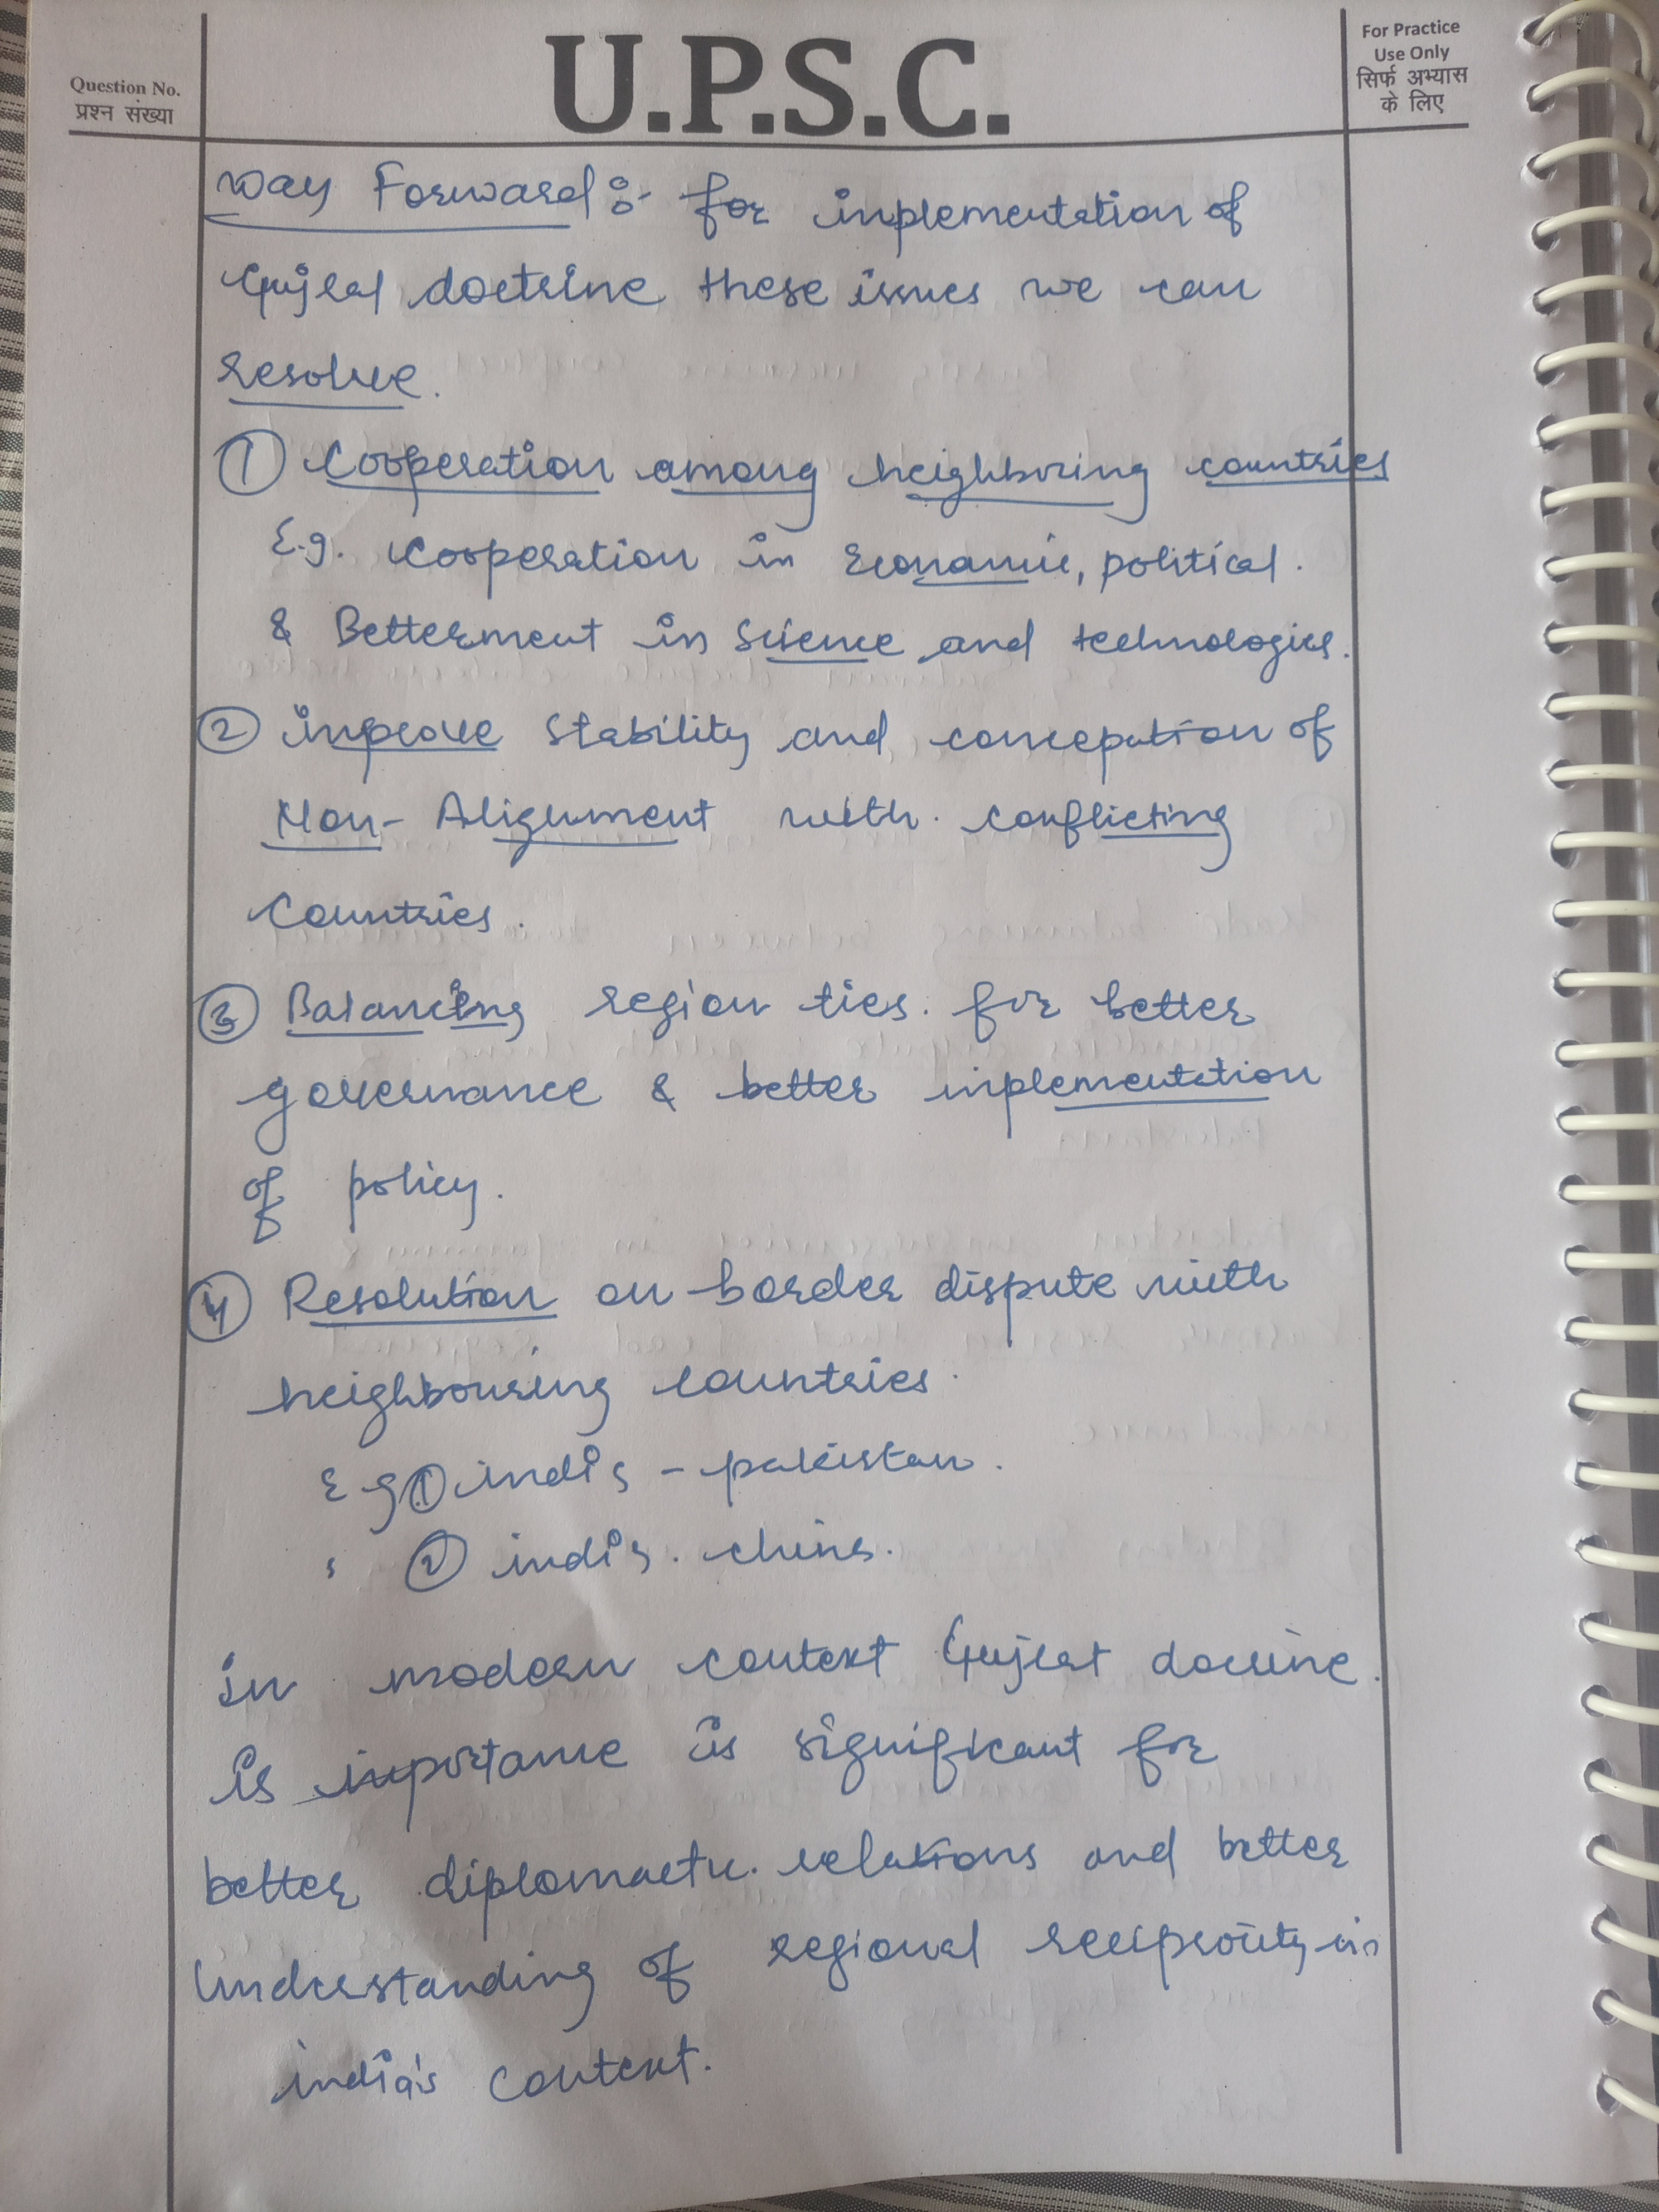 Question No.
प्रश्न संख्या
U.P.S.C.
For Practice
Use Only
सिर्फ अभ्यास
के लिए
Way Forward :- for implementation of
Gujral doctrine these issues we can
resolve.
① Cooperation among neighboring countries
E.g. Cooperation in Economic, political.
& Betterment in Science and technologies.
② improve stability and conception of
Non-Alignment with conflicting
Countries.
③ Balancing region ties. for better
governance & better implementation
of policy.
④ Resolution on border dispute with
neighbouring countries.
Eg ① india - pakistan.
② india. china.
in modern context Gujral docrine.
is importance is significant for
better diplomactic. relations and better
understanding of regional reciprocity in
india's context.